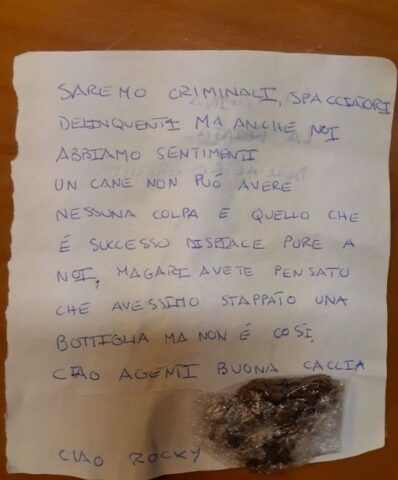 SAREMO CRIMINALI, SPACCIATORI
DELINQUENTI MA ANCHE NOI
ABBIAMO SENTIMENTI
UN CANE NON PUÓ AVERE
NESSUNA COLPA E QUELLO CHE
É SUCCESSO DISPIACE PURE A
NOI, MAGARI AVETE PENSATO
CHE AVESSIMO STAPPATO UNA
BOTTIGLIA MA NON É COSÌ,
CIAO AGENTI BUONA CACCIA
CIAO ROCKY